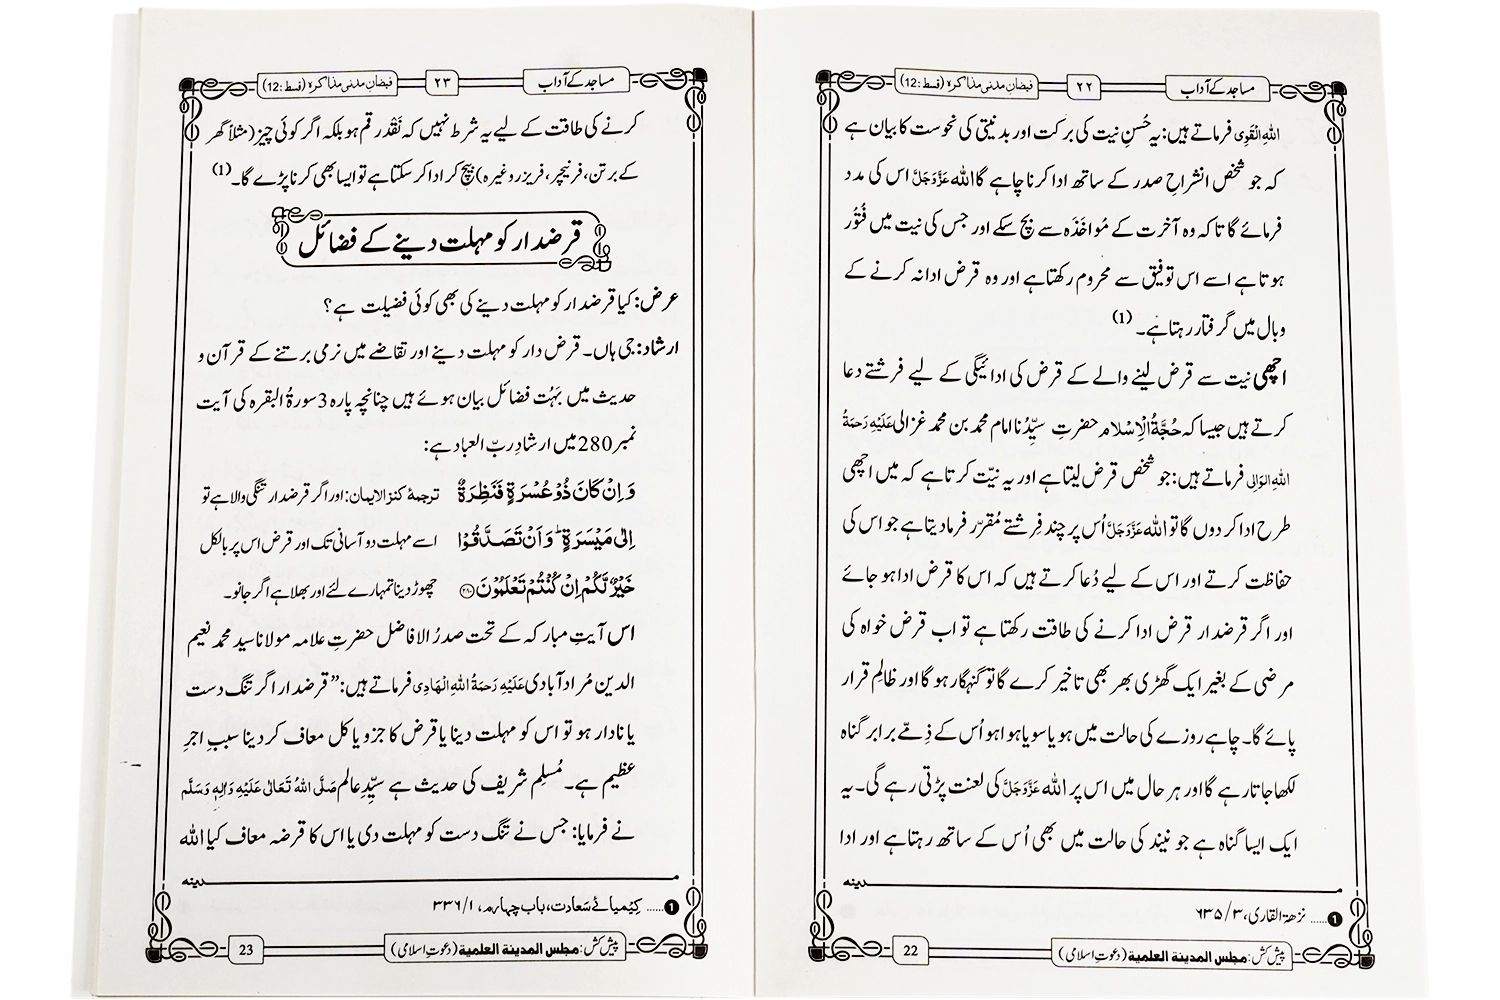 مساجد کے آداب
۲۲
فیضانِ مدنی مذاکرہ (قسط:12)
اللهِ الْقَوِی فرماتے ہیں: یہ حُسنِ نیت کی برکت اور بدنیتی کی نحوست کا بیان ہے
کہ جو شخص انشراحِ صدر کے ساتھ ادا کرنا چاہے گا اللہ عَزَّوَجَلَّ اس کی مدد
فرمائے گا تاکہ وہ آخرت کے مُواخَذَہ سے بچ سکے اور جس کی نیت میں فُتُور
ہوتا ہے اسے اس توفیق سے محروم رکھتا ہے اور وہ قرض ادا نہ کرنے کے
وبال میں گرفتار رہتا ہے۔ (1)
اچھی نیت سے قرض لینے والے کے قرض کی ادائیگی کے لیے فرشتے دعا
کرتے ہیں جیسا کہ حُجَّةُ الْاِسْلَام حضرتِ سیِّدُنا امام محمد بن محمد غزالی عَلَیْهِ رَحمَةُ
اللهِ الوَالِی فرماتے ہیں: جو شخص قرض لیتا ہے اور یہ نیّت کرتا ہے کہ میں اچھی
طرح ادا کر دوں گا تو اللہ عَزَّوَجَلَّ اُس پر چند فِرشتے مُقرّر فرما دیتا ہے جو اس کی
حفاظت کرتے اور اس کے لیے دُعا کرتے ہیں کہ اس کا قرض ادا ہو جائے
اور اگر قرضدار قرض ادا کرنے کی طاقت رکھتا ہے تو اب قرض خواہ کی
مرضی کے بغیر ایک گھڑی بھر بھی تاخیر کرے گا تو گنہگار ہو گا اور ظالِم قرار
پائے گا۔ چاہے روزے کی حالت میں ہو یا سویا ہوا ہو اُس کے ذِمّے برابر گناہ
لکھا جاتا رہے گا اور ہر حال میں اس پر اللہ عَزَّوَجَلَّ کی لعنت پڑتی رہے گی۔ یہ
ایک ایسا گناہ ہے جو نیند کی حالت میں بھی اُس کے ساتھ رہتا ہے اور ادا
مدینہ
❶ ..... نزهة القاری، ۳/ ۶۳۵
پیش کش: مجلس المدینة العلمیة (دعوتِ اسلامی)
22
مساجد کے آداب
۲۳
فیضانِ مدنی مذاکرہ (قسط:12)
کرنے کی طاقت کے لیے یہ شرط نہیں کہ نَقْد رقم ہو بلکہ اگر کوئی چیز (مثلاً گھر
کے برتن، فرنیچر، فریزر وغیرہ) بیچ کر ادا کر سکتا ہے تو ایسا بھی کرنا پڑے گا۔ (1)
قرضدار کو مہلت دینے کے فضائل
عرض: کیا قرضدار کو مہلت دینے کی بھی کوئی فضیلت ہے؟
ارشاد: جی ہاں۔ قرض دار کو مہلت دینے اور تقاضے میں نرمی برتنے کے قرآن و
حدیث میں بَہُت فضائل بیان ہوئے ہیں چنانچہ پارہ 3 سورۃُ البقرہ کی آیت
نمبر 280 میں ارشادِ ربّ العباد ہے:
وَ اِنْ كَانَ ذُوْ عُسْرَةٍ فَنَظِرَةٌ ترجمۂ کنز الایمان: اور اگر قرضدار تنگی والا ہے تو
اِلٰى مَیْسَرَةٍؕ-وَ اَنْ تَصَدَّقُوْا اسے مہلت دو آسانی تک اور قرض اس پر بالکل
خَیْرٌ لَّكُمْ اِنْ كُنْتُمْ تَعْلَمُوْنَ ﴿۲۸۰﴾ چھوڑ دینا تمہارے لئے اور بھلا ہے اگر جانو۔
اس آیتِ مبارکہ کے تحت صدرُ الافاضل حضرتِ علامہ مولانا سید محمد نعیم
الدین مُراد آبادی عَلَیْهِ رَحمَةُ اللهِ الْهَادِی فرماتے ہیں: ”قرضدار اگر تنگ دست
یا نادار ہو تو اس کو مہلت دینا یا قرض کا جزو یا کل معاف کر دینا سببِ اجرِ
عظیم ہے۔ مُسلِم شریف کی حدیث ہے سیِّدِ عالم صَلَّی اللهُ تَعَالٰی عَلَیْهِ وَاٰلِهٖ وَسَلَّم
نے فرمایا: جس نے تنگ دست کو مہلت دی یا اس کا قرضہ معاف کیا اللہ
مدینہ
❶ ..... کیمیائے سَعادت، باب چہارم، ۱/ ۳۳۶
پیش کش: مجلس المدینة العلمیة (دعوتِ اسلامی)
23